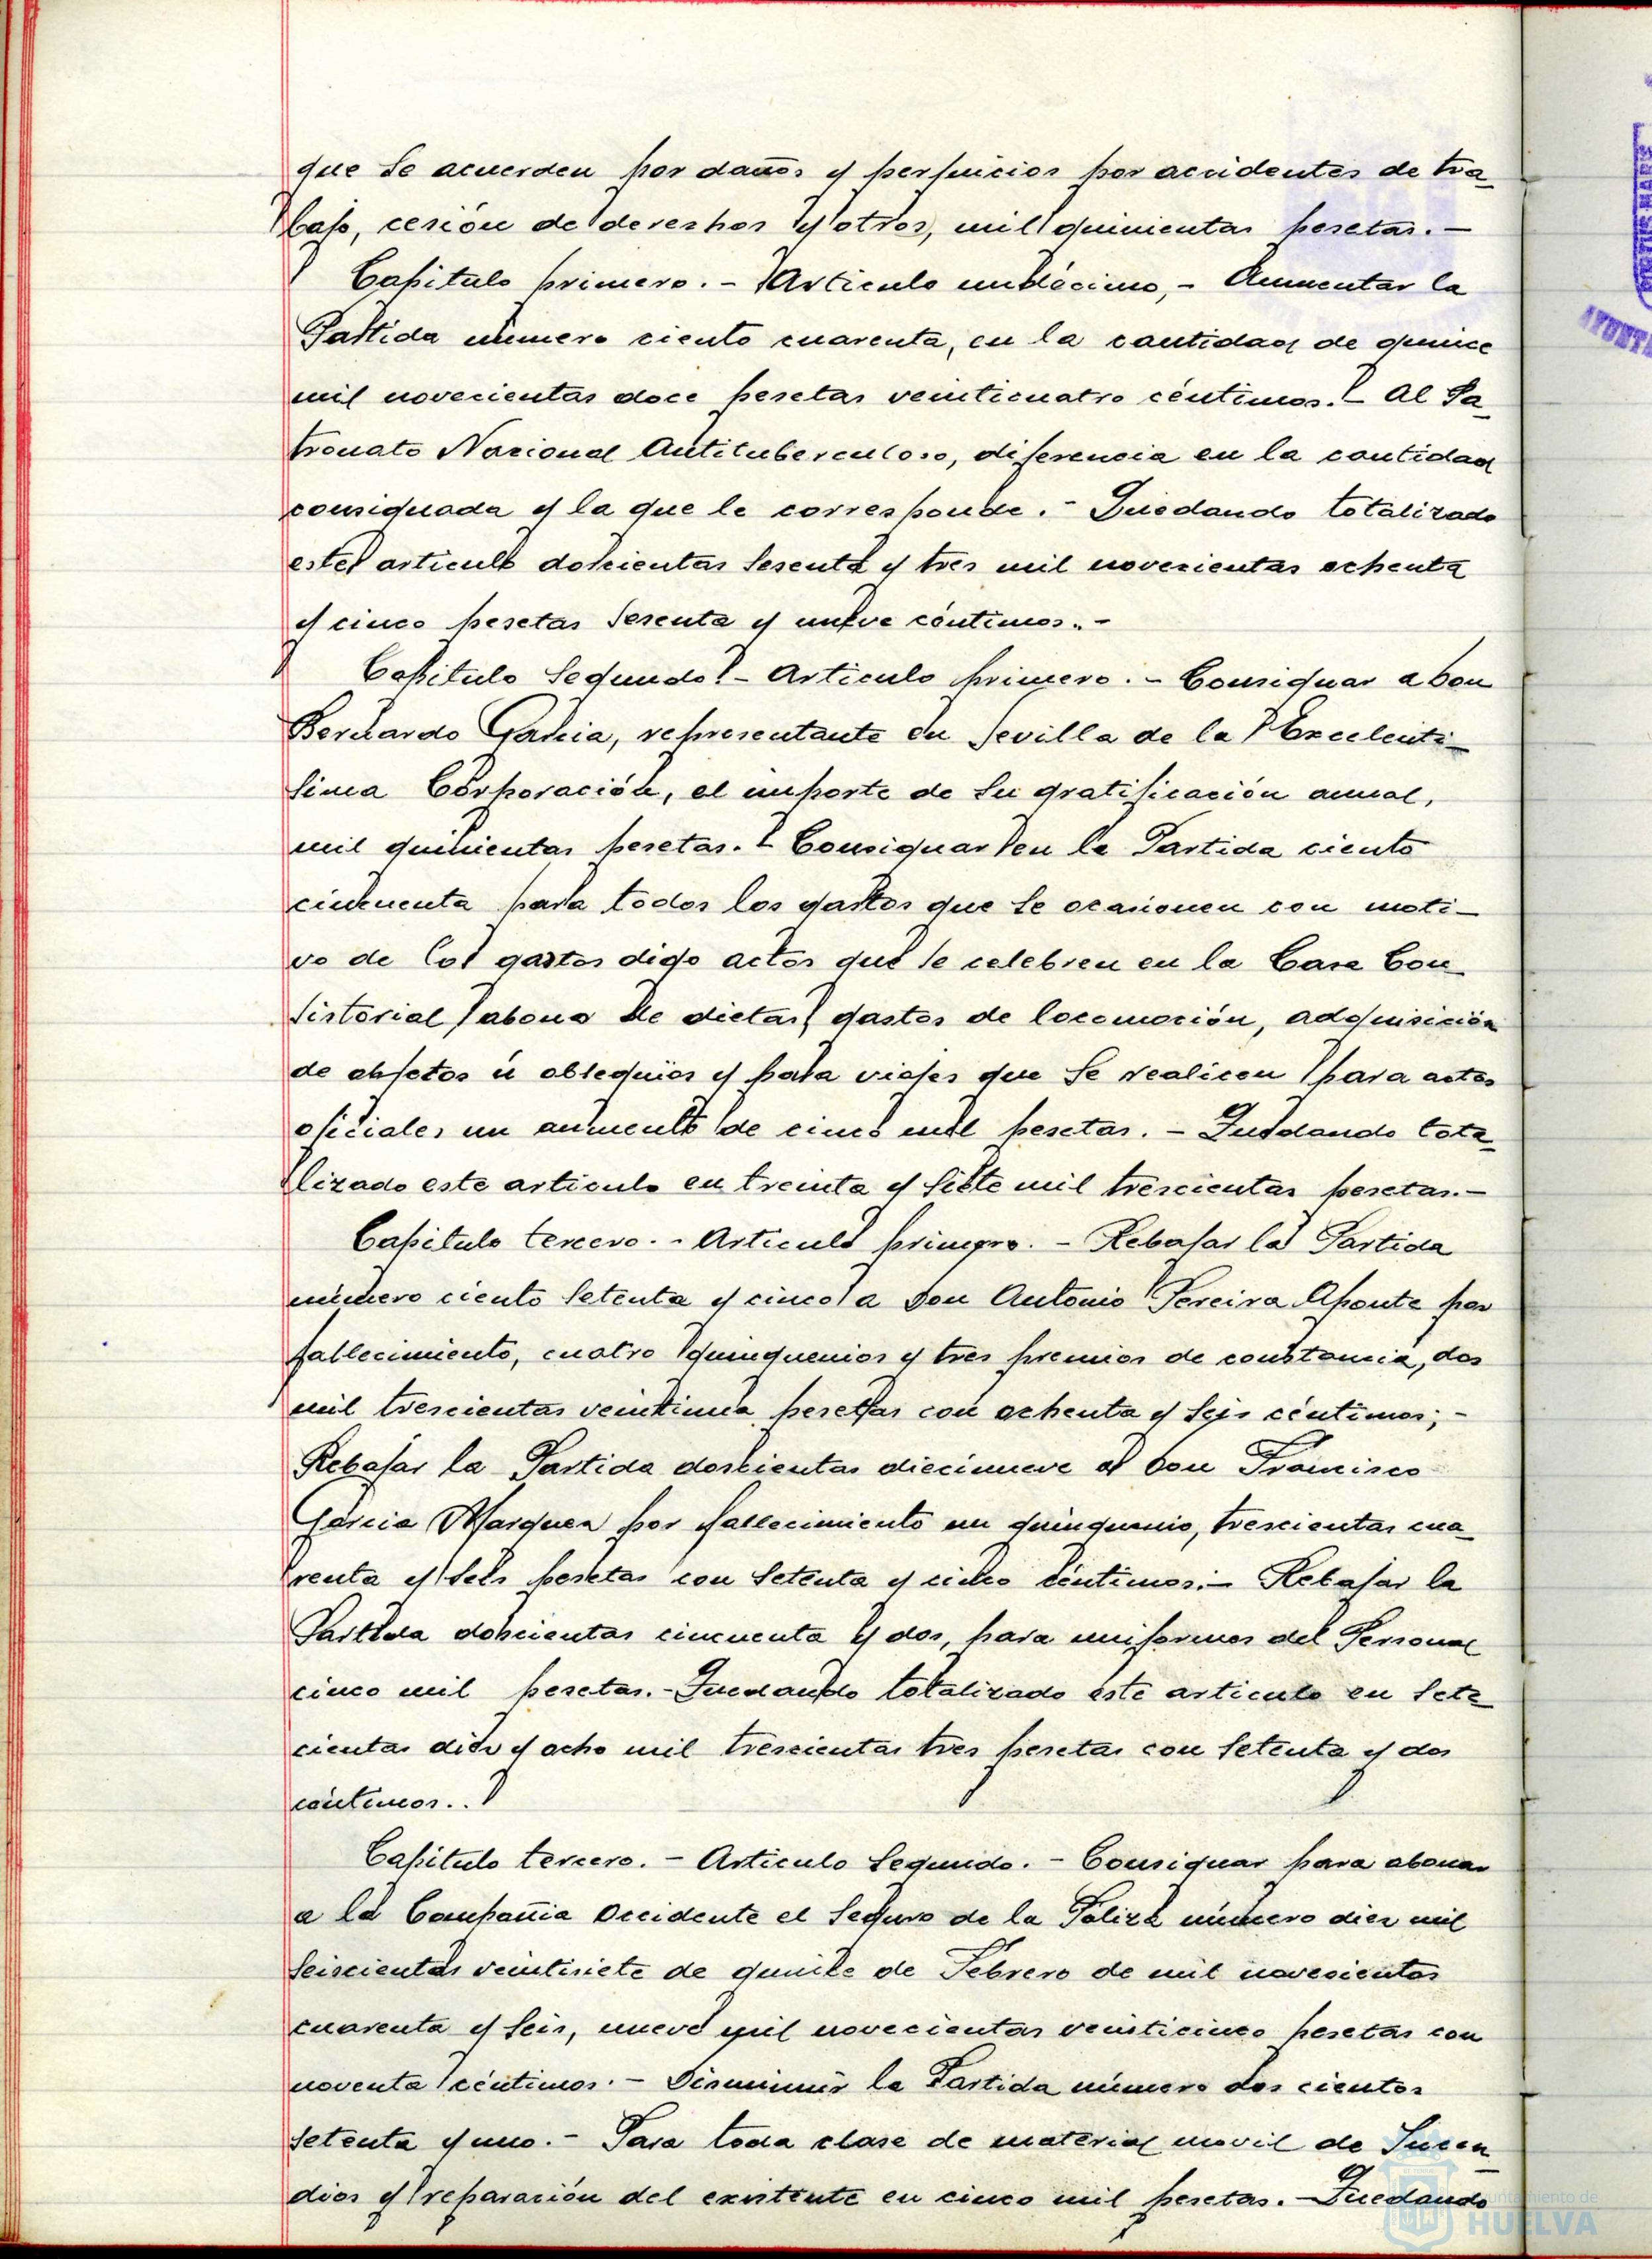 que se acuerden por daños y perjuicios por accidentes de tra-
bajo, cesión de derechos y otros, mil quinientas pesetas.-
Capitulo primero.- Articulo undécimo,- Aumentar la
Partida número ciento cuarenta, en la cantidad de quince
mil novecientas doce pesetas veinticuatro céntimos.- Al Pa-
tronato Nacional Antituberculoso, diferencia en la cantidad
consignada y la que le corresponde.- Quedando totalizado
este articulo doscientas sesenta y tres mil novecientas ochenta
y cinco pesetas sesenta y nueve céntimos.-
Capitulo segundo.- Articulo primero.- Consignar a Don
Bernardo Garcia, representante en Sevilla de la Excelenti-
sima Corporación, el importe de su gratificación anual,
mil quinientas pesetas.- Consignar en la Partida ciento
cincuenta para todos los gastos que se ocasionen con moti-
vo de los gastos digo actos que se celebren en la Casa Con
sistorial, abono de dietas, gastos de locomoción, adquisición
de objetos ú obsequios y para viajes que se realicen para actos
oficiales un aumento de cinco mil pesetas.- Quedando tota-
lizado este articulo en treinta y siete mil trescientas pesetas.-
Capitulo tercero.- Articulo primero.- Rebajar la Partida
número ciento setenta y cinco a Don Antonio Pereira Aponte por
fallecimiento, cuatro quinquenios y tres premios de constancia, dos
mil trescientas veintiuna pesetas con ochenta y seis céntimos;-
Rebajar la Partida doscientas diecinueve a Don Francisco
Garcia Marquez por fallecimiento un quinquenio, trescientas cua-
renta y seis pesetas con setenta y cinco céntimos;- Rebajar la
Partida doscientas cincuenta y dos, para uniformes del Personal
cinco mil pesetas.- Quedando totalizado este articulo en sete-
cientas diez y ocho mil trescientas tres pesetas con setenta y dos
céntimos..
Capitulo tercero.- Articulo segundo.- Consignar para abonar
a la Compañia Occidente el Seguro de la Póliza número diez mil
seiscientas veintisiete de quince de Febrero de mil novecientos
cuarenta y seis, nueve mil novecientas veinticinco pesetas con
noventa céntimos.- Disminuir la Partida número dos cientos
setenta y uno.- Para toda clase de material movil de Incen
dios y reparación del existente en cinco mil pesetas.- Quedando
Ayuntamiento de
HUELVA